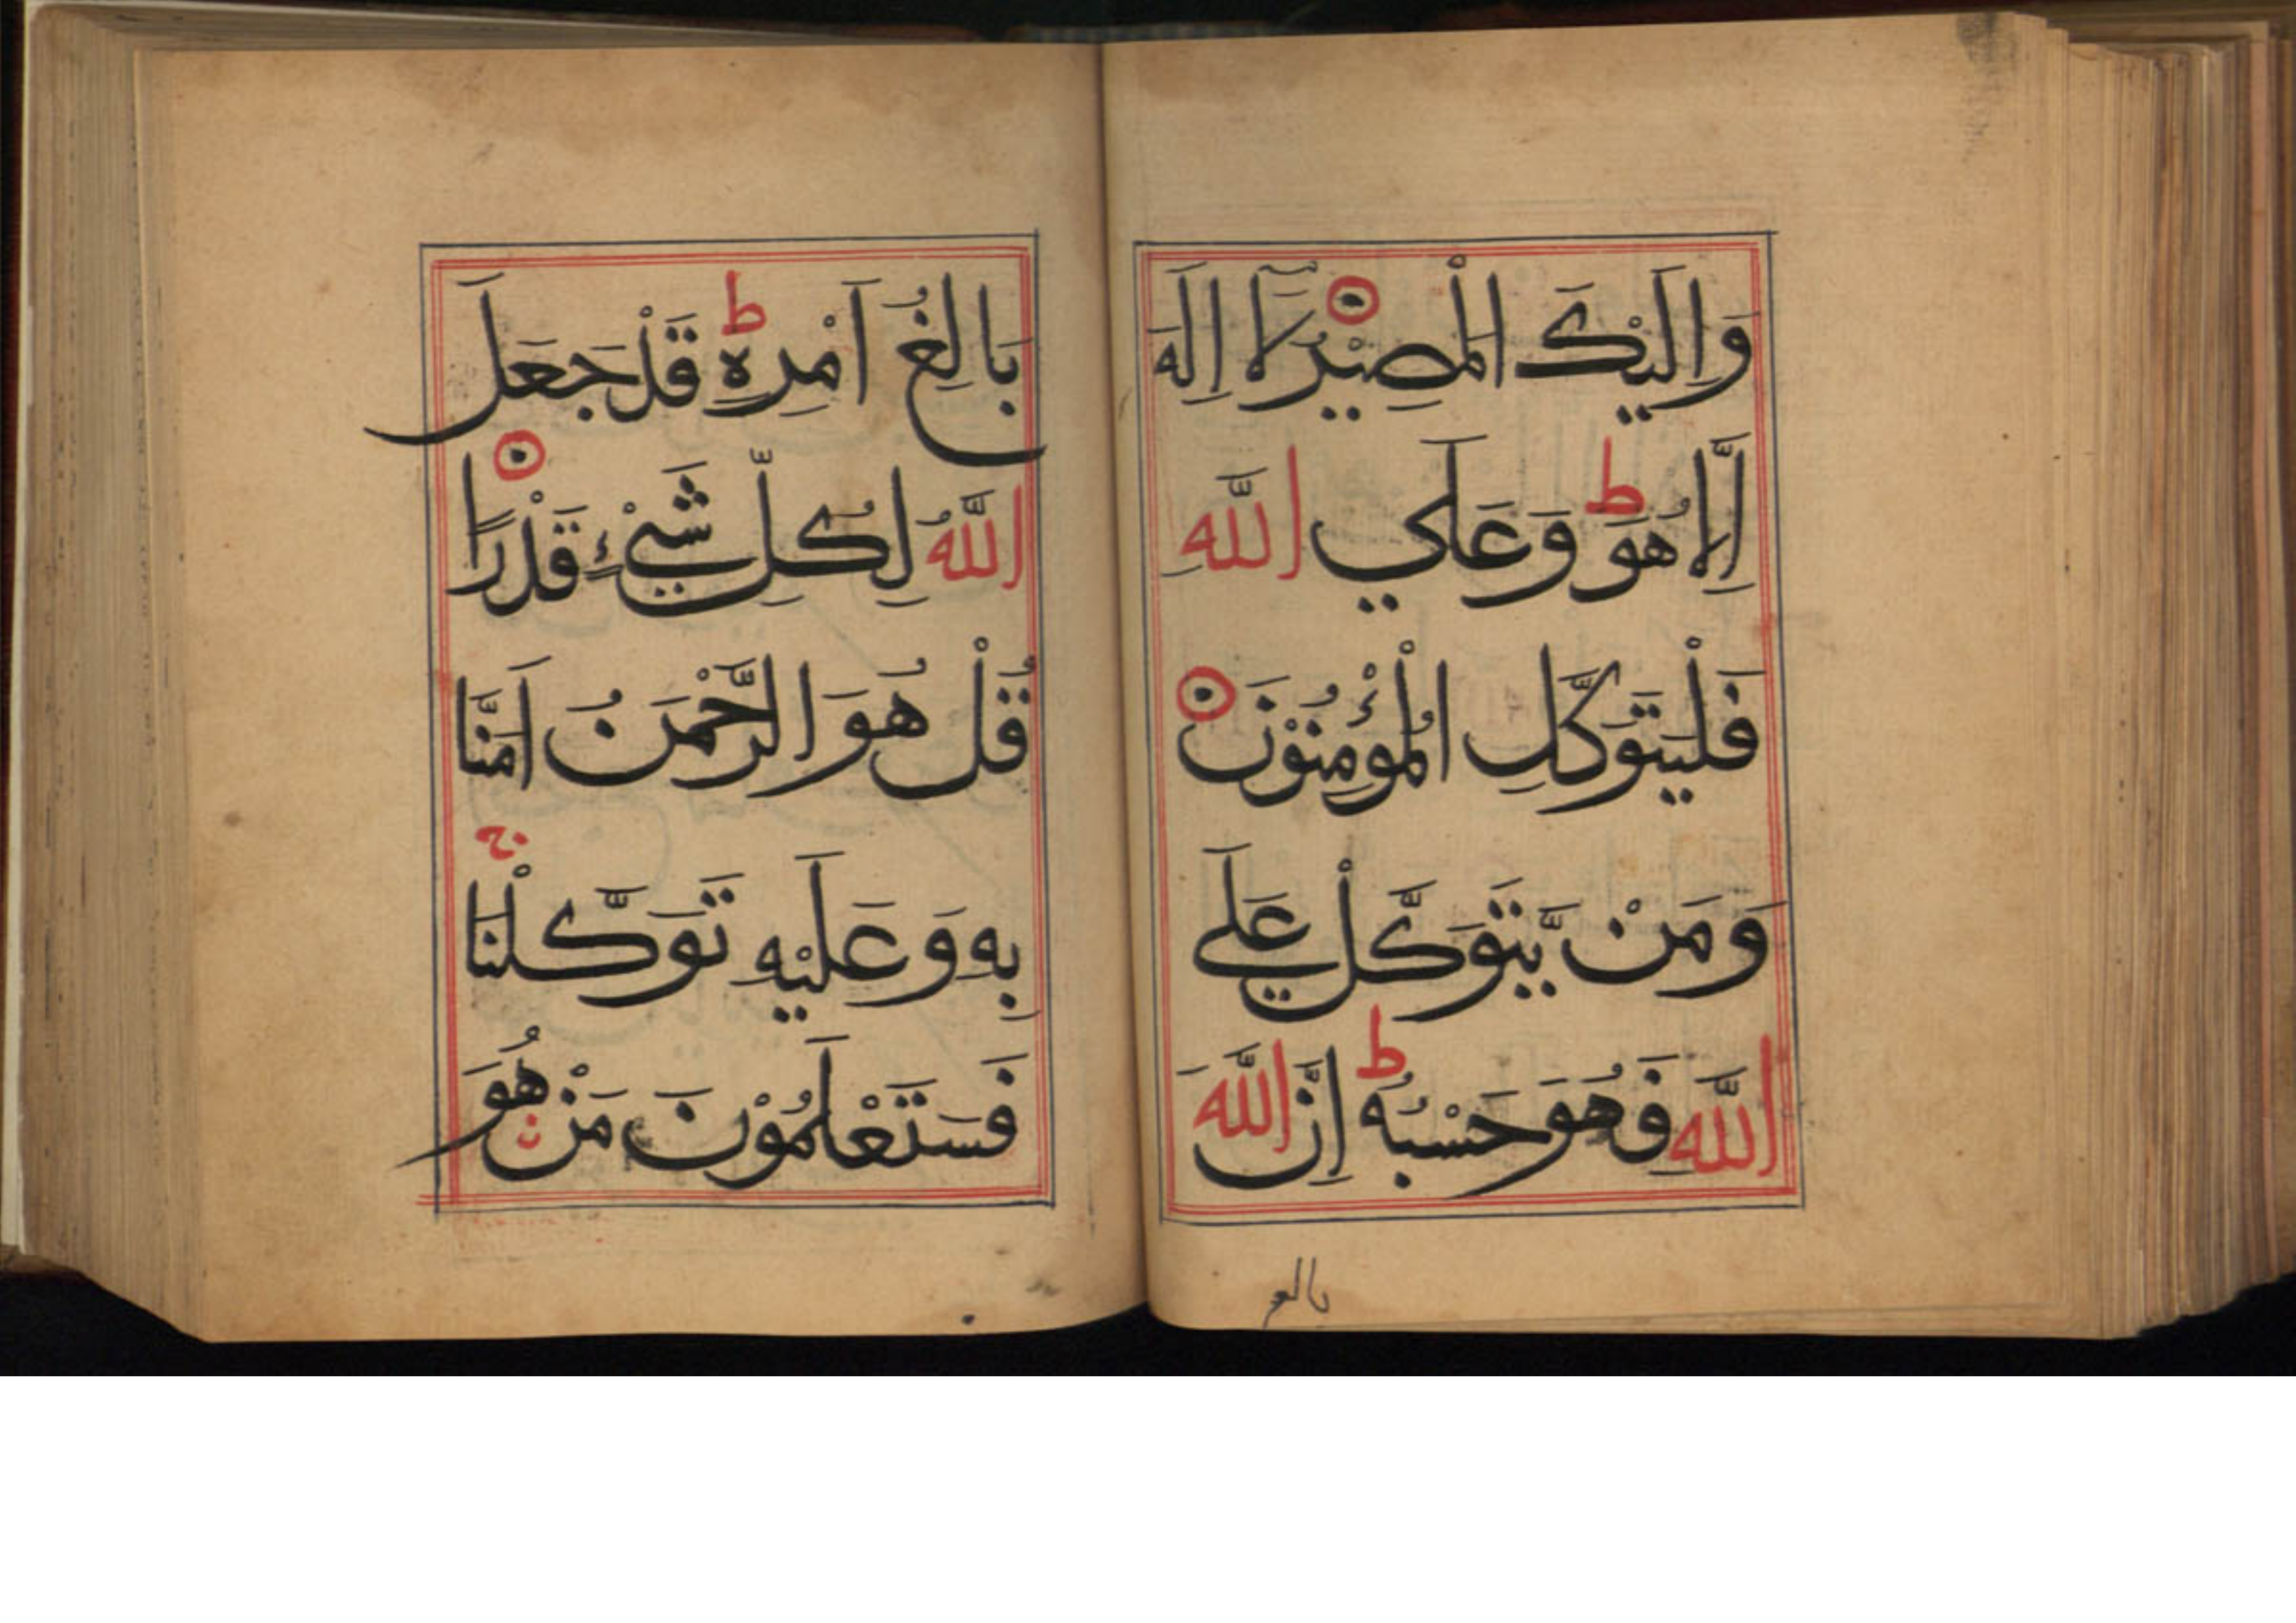 وَاِلَيْكَ الْمَصِيْرُ لَآ اِلٰهَ
اِلَّا هُوَ ط وَعَلَي اللّٰهِ
فَلْيَتَوَكَّلِ الْمُؤْمِنُوْنَ
وَمَنْ يَّتَوَكَّلْ عَلَي
اللّٰهِ فَهُوَ حَسْبُهُ ط اِنَّ اللّٰهَ
بالغ
بَالِغُ اَمْرِهٖ ط قَدْ جَعَلَ
اللّٰهُ لِكُلِّ شَيْءٍ قَدْرًا
قُلْ هُوَ الرَّحْمَنُ اَمَنَّا
بِهٖ وَعَلَيْهِ تَوَكَّلْنَا ج
فَسَتَعْلَمُوْنَ مَنْ هُوَ